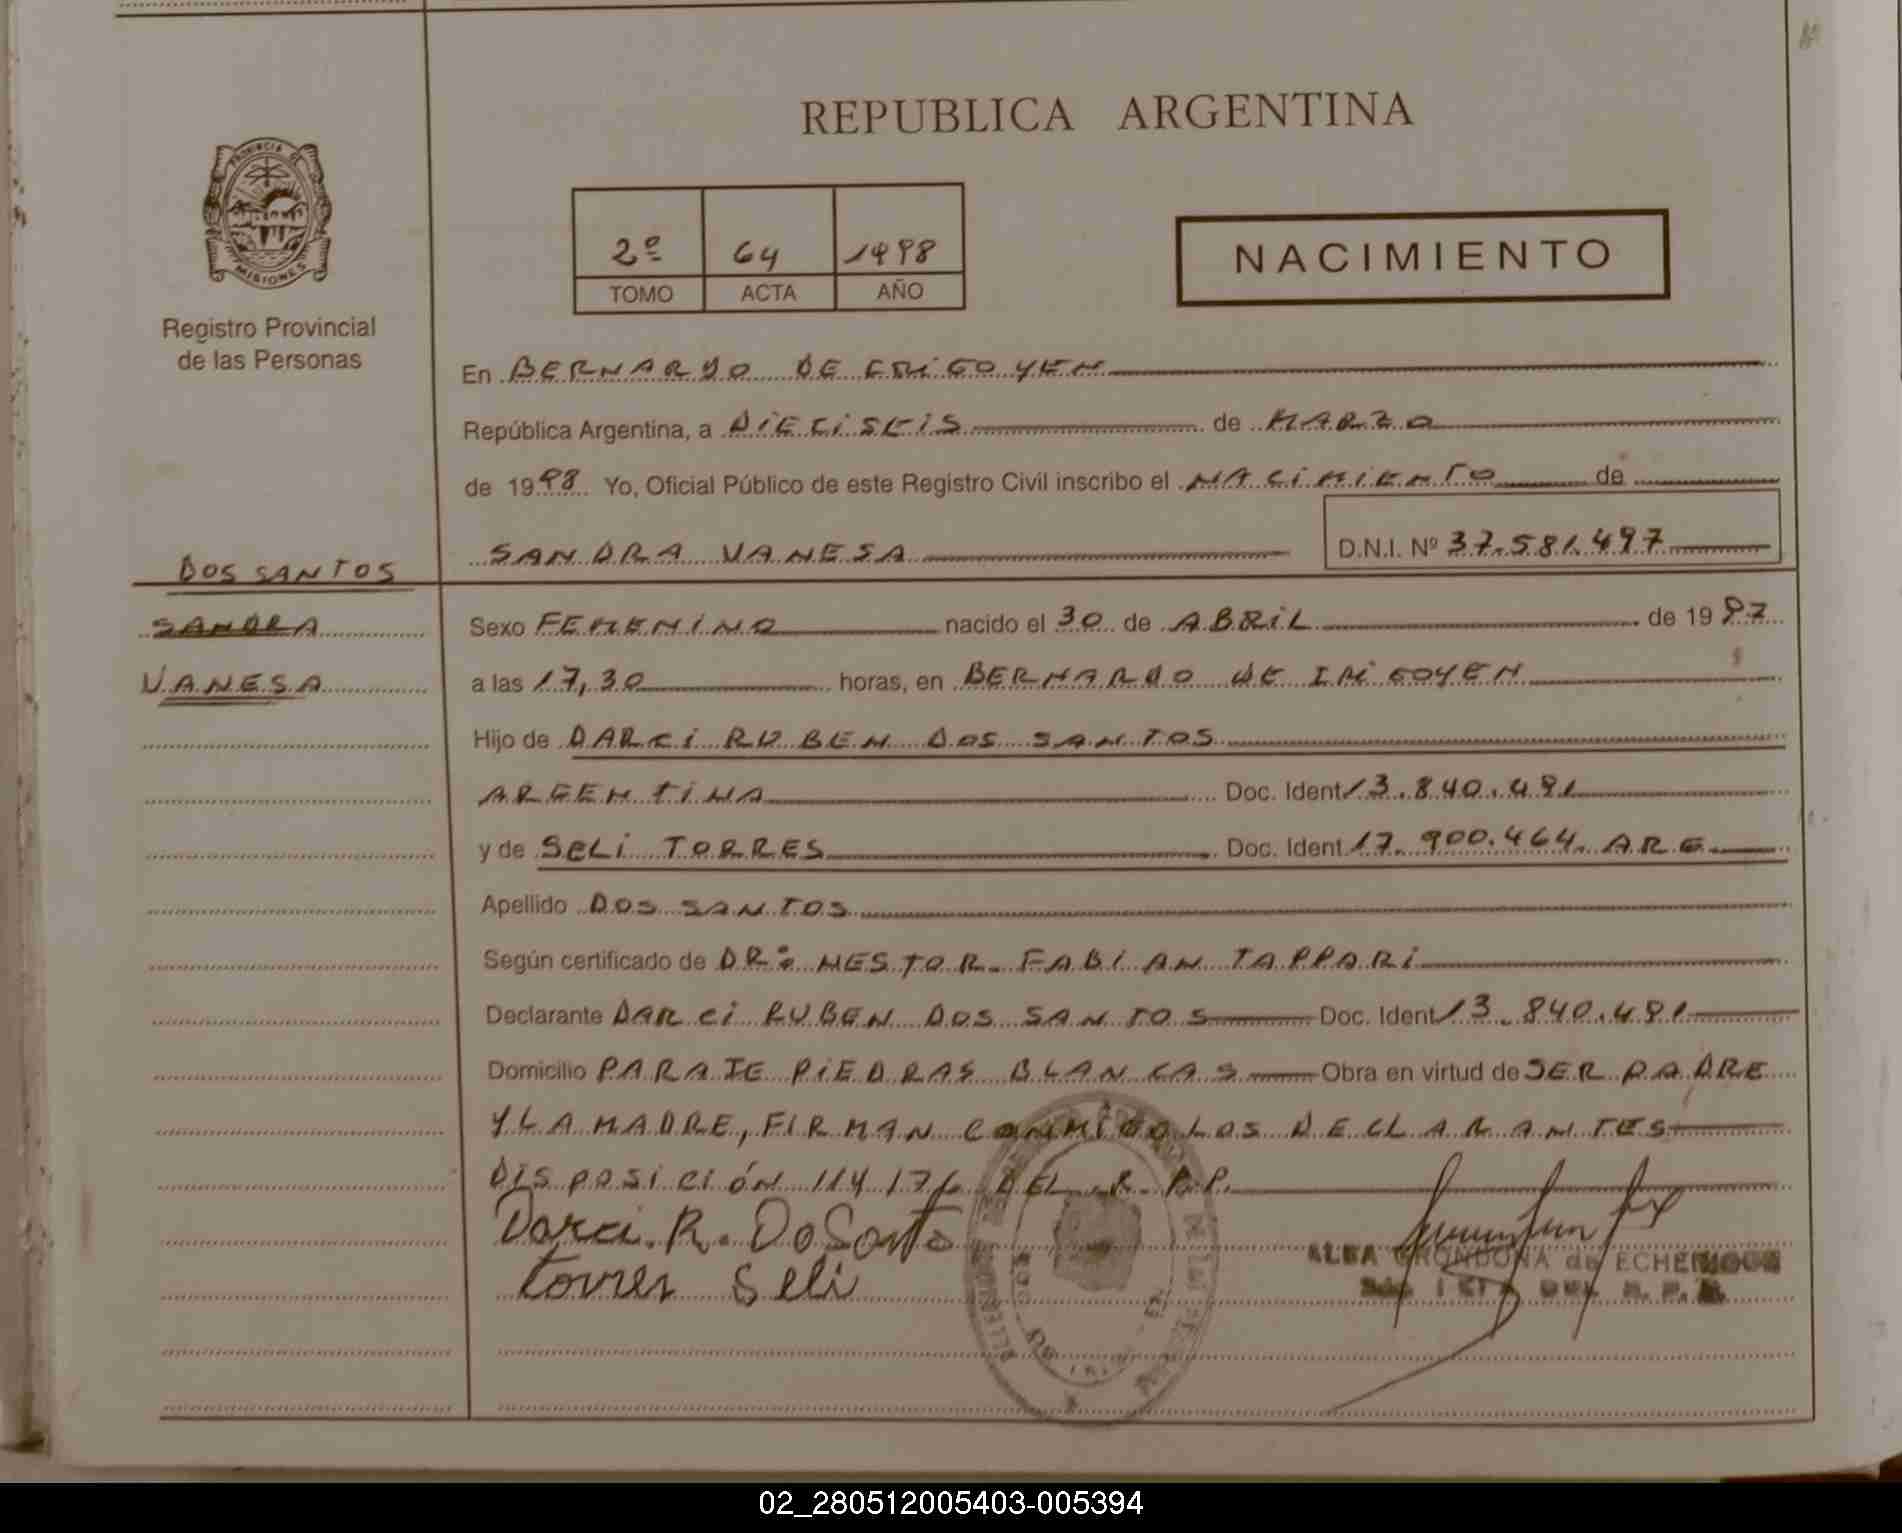 REPUBLICA ARGENTINA
PROVINCIA DE
MISIONES
Registro Provincial
de las Personas
2º 64 1998
TOMO ACTA AÑO
NACIMIENTO
En BERNARDO DE IRIGOYEN
República Argentina, a DIECISEIS de MARZO
de 1998 Yo, Oficial Público de este Registro Civil inscribo el NACIMIENTO de
SANDRA VANESA D.N.I. Nº 37.581.497
DOS SANTOS
SANDRA
VANESA
Sexo FEMENINO nacido el 30 de ABRIL de 1997
a las 17,30 horas, en BERNARDO DE IRIGOYEN
Hijo de DARCI RUBEN DOS SANTOS
ARGENTINA Doc. Ident 13.840.491
y de SELI TORRES Doc. Ident 17.900.464. ARG
Apellido DOS SANTOS
Según certificado de DR: NESTOR. FABIAN TAPPARI
Declarante DARCI RUBEN DOS SANTOS Doc. Ident 13.840.491
Domicilio PARAJE PIEDRAS BLANCAS Obra en virtud de SER PADRE
Y LA MADRE, FIRMAN CONMIGO LOS DECLARANTES
DISPOSICIÓN 114/76 DEL R.P.P.
Darci. R. DoSanto
torres Seli
ALBA GRONDONA de
02_280512005403-005394